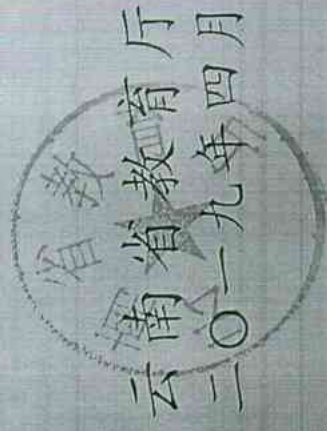 云南省教育厅
二〇一九年四月